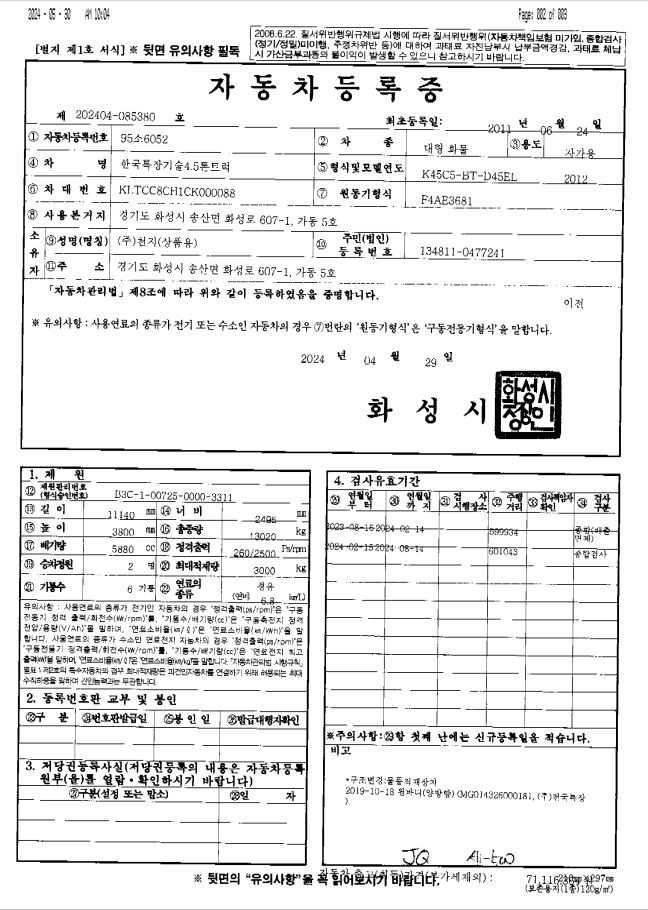 2024 - 05 - 30 AM 10:04 Page: 002 of 003
[별지 제1호 서식] ※ 뒷면 유의사항 필독
2008.6.22. 질서위반행위규제법 시행에 따라 질서위반행위(자동차책임보험 미가입, 종합검사
(정기/정밀)미이행, 주정차위반 등)에 대하여 과태료 자진납부시 납부금액경감, 과태료 체납
시 가산금부과등의 불이익이 발생할 수 있으니 참고하시기 바랍니다.
자동차등록증
제 202404-085380 호
최초등록일: 2011 년 06 월 24 일
① 자동차등록번호 95소6052 ② 차 종 대형 화물 ③용도 자가용
④ 차 명 한국특장기술4.5톤트럭 ⑤형식및모델연도 K45C5-BT-D45EL 2012
⑥ 차대번호 KLTCC8CH1CK000088 ⑦ 원동기형식 F4AE3681
⑧ 사용본거지 경기도 화성시 송산면 화성로 607-1, 가동 5호
소유자 ⑨성명(명칭) (주)천지(상품용) ⑩ 주민(법인)등록번호 134811-0477241
⑪주 소 경기도 화성시 송산면 화성로 607-1, 가동 5호
「자동차관리법」제8조에 따라 위와 같이 등록하였음을 증명합니다.
이전
※ 유의사항 : 사용연료의 종류가 전기 또는 수소인 자동차의 경우 ⑦번란의 '원동기형식'은 '구동전동기형식'을 말합니다.
2024 년 04 월 29 일
화 성 시
1. 제 원
⑫ 제원관리번호(형식승인번호) B3C-1-00725-0000-3311
⑬ 길 이 11140 mm ⑭ 너 비 2495 mm
⑮ 높 이 3800 mm ⑯ 총중량 13020 kg
⑰ 배기량 5880 cc ⑱ 정격출력 260/2500 Ps/rpm
⑲ 승차정원 2 명 ⑳ 최대적재량 3000 kg
㉑ 기통수 6 기통 ㉒ 연료의 종류 경유 (연비: 6.8 km/L)
유의사항 : 사용연료의 종류가 전기인 자동차의 경우 "정격출력(ps/rpm)"은 "구동
전동기 정격 출력/회전수(kW/rpm)"를, "기통수/배기량(cc)"은 "구동축전지 정격
전압/용량(V/Ah)"을 말하며, "연료소비율(㎞/ℓ)"은 "연료소비율(㎞/kWh)"을 말
합니다. 사용연료의 종류가 수소인 연료전지 자동차의 경우 "정격출력(ps/rpm)"은
"구동전동기 정격출력/회전수(kW/rpm)"를, "기통수/배기량(cc)"은 "연료전지 최고
출력(kW)을 말하며, "연료소비율(㎞/ℓ)"은 "연료소비율(㎞/kg)"을 말합니다. 「자동차관리법 시행규칙」
별표 1 제2호의 특수자동차의 경우 최대적재량은 피견인자동차를 연결하기 위해 허용되는 최대
수직하중을 말하며 견인능력과는 무관합니다.
2. 등록번호판 교부 및 봉인
㉓구 분 ㉔번호판발급일 ㉕봉 인 일 ㉖발급대행자확인
3. 저당권등록사실(저당권등록의 내용은 자동차등록
원부(을)를 열람·확인하시기 바랍니다)
㉗구분(설정 또는 말소) ㉘일 자
4. 검사유효기간
㉙ 연월일부터 ㉚ 연월일까지 ㉛ 검 사 시행장소 ㉜ 주행거리 ㉝ 검사책임자확인 ㉞ 검사구분
2023-08-15 2024-02-14 599934
2024-02-15 2024-08-14 601043 종합검사
※주의사항:㉙항 첫째 난에는 신규등록일을 적습니다.
비고
*구조변경:물품적재장치
2019-10-18 윙바디(양방향) (MG014326000181, (주)전국특장
)
JQ
※ 뒷면의 "유의사항"을 꼭 읽어보시기 바랍니다.
자동차 출고(취득)가격(부가세제외) :
210㎜×297㎜
(보존용지(1종)120g/㎡)